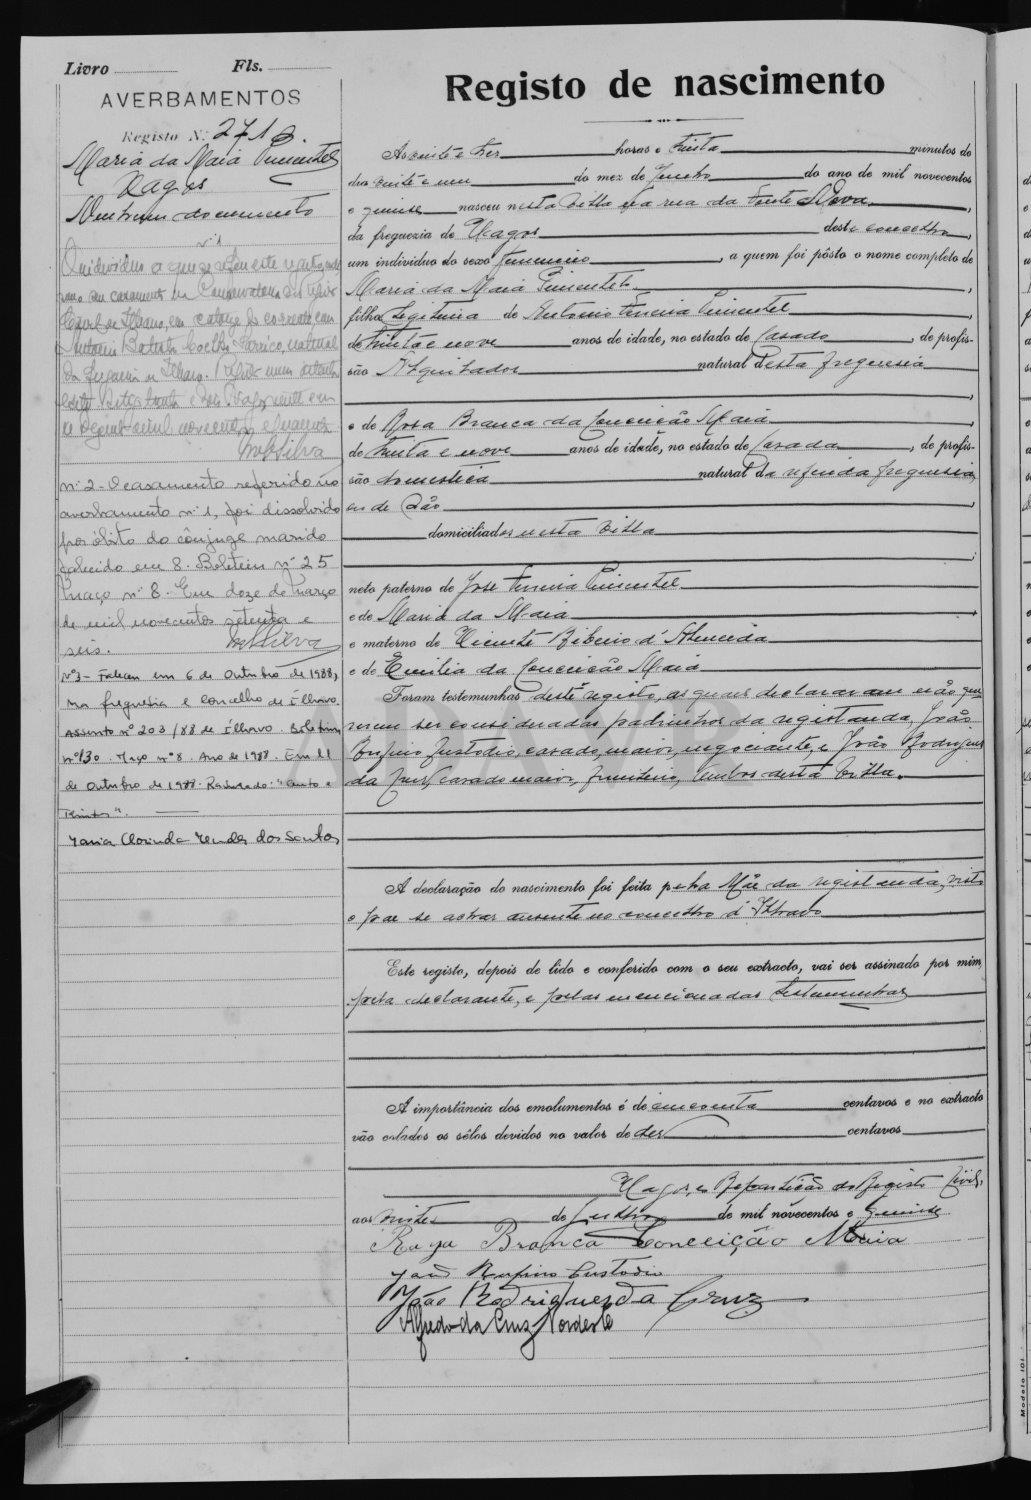 Livro Fls.
AVERBAMENTOS
Registo N.º 271
Maria da Maia Pimentel
Vagos
Nenhum documento
nº 1
O individuo a que se refere este registo
seu casamento na Conservatoria do Registo
Civil de Ilhavo, em catorze do corrente, com
Antonio Batista Coelho, natural
da freguesia de Ilhavo.
Silva
nº 2 - O casamento referido no
averbamento nº 1, foi dissolvido
por óbito do cônjuge marido
falecido em 8. Boletim nº 25
Maço nº 8. Em doze de Março
de mil novecentos setenta e
seis. Silva
Nº 3 - Faleceu em 6 de Outubro de 1988,
na freguesia e concelho de Ílhavo.
Assento nº 203/88 de Ílhavo. Boletim
nº 130. Maço nº 8. Ano de 1988. Em 11
de Outubro de 1988. Rasurado: "
".
Maria Clorinda Mendes dos Santos
Registo de nascimento
Ás vinte e tres horas e trinta minutos do
dia vinte e um do mez de Junho do ano de mil novecentos
e quinse nasceu nesta Villa e na rua da Fonte Nova,
da freguezia de Vagos deste concelho,
um individuo do sexo femenino, a quem foi pôsto o nome completo de
Maria da Maia Pimentel,
filha legitima de Antonio Ferreira Pimentel
de trinta e nove anos de idade, no estado de casado, de profis-
são natural desta freguesia
e de Rosa Branca da Conceição Maia
de trinta e nove anos de idade, no estado de casada, de profis-
são domestica natural da referida freguesia
domiciliados nesta Villa
neto paterno de José Ferreira Pimentel
e de Maria da Maia
e materno de Vicente Ribeiro d'Almeida
e de Emilia da Conceição Maia
Foram testemunhas deste registo, as quaes declararam não que-
rerem ser consideradas padrinhos da registanda, João
Rufino Custodio, casado, maior, negociante, e João Rodrigues
da Cruz, casado, maior, funileiro, ambos desta Villa.
A declaração do nascimento foi feita pela Mãe da registanda, visto
o pae se achar ausente no concelho d'Ilhavo
Este registo, depois de lido e conferido com o seu extracto, vai ser assinado por mim,
pela declarante, e pelas mencionadas testemunhas
A importância dos emolumentos é de cincoenta centavos e no extracto
vão colados os sêlos devidos no valor de dez centavos
Vagos, e Repartição do Registo Civil,
aos de Julho de mil novecentos e quinse
Roza Branca Conceição Maia
João Rufino Custodio
João Rodrigues da Cruz
Alfredo da Cruz Nordeste
Modelo 101